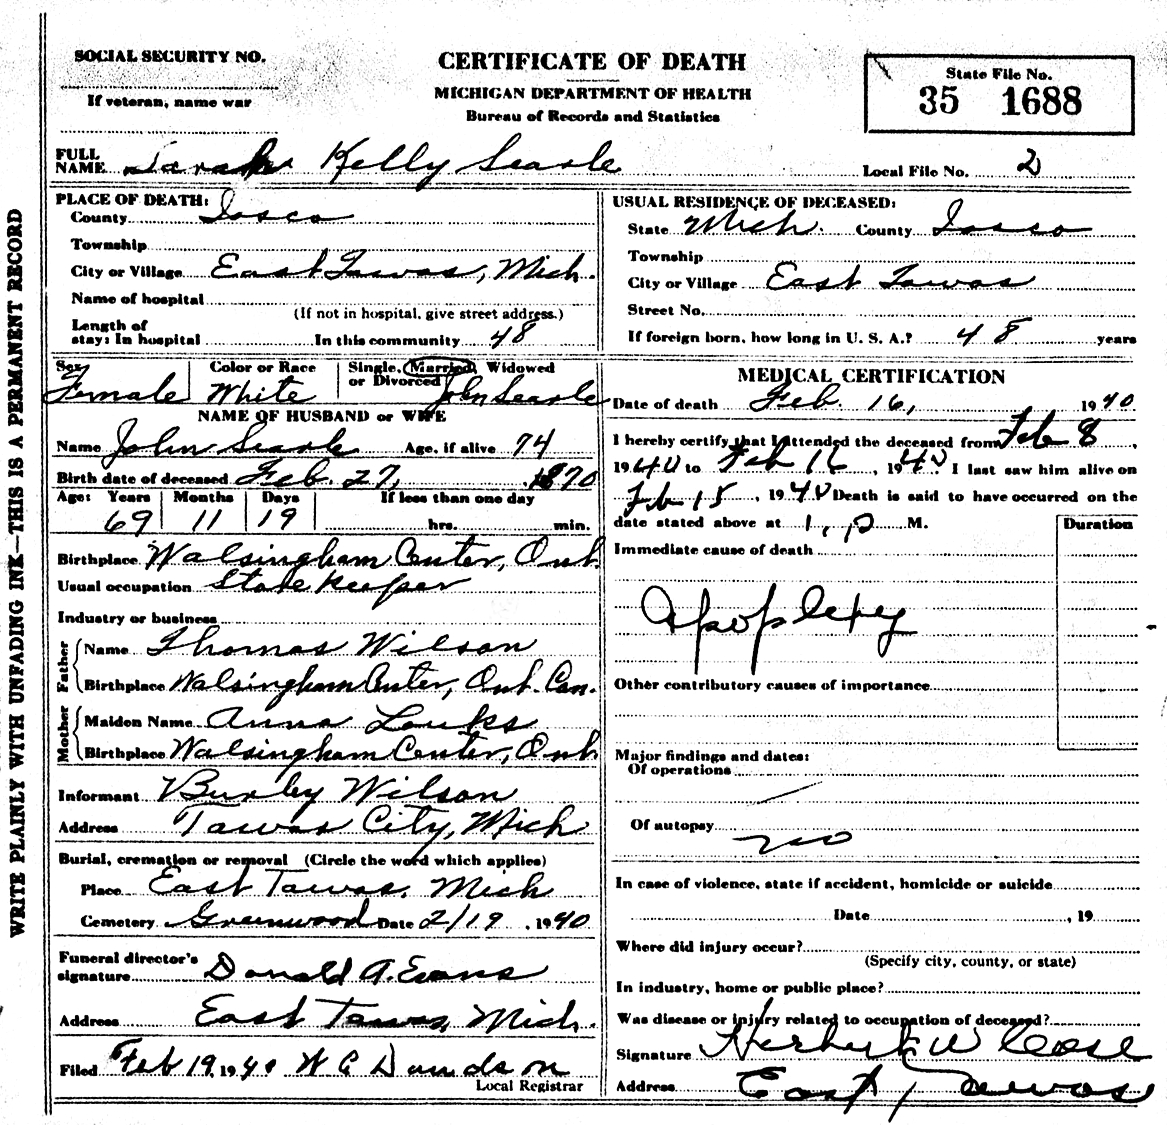 SOCIAL SECURITY NO.
If veteran, name war
CERTIFICATE OF DEATH
MICHIGAN DEPARTMENT OF HEALTH
Bureau of Records and Statistics
State File No.
35 1688
FULL NAME Sarah Kelly Searle
Local File No. 2
WRITE PLAINLY WITH UNFADING INK—THIS IS A PERMANENT RECORD
PLACE OF DEATH:
County Iosco
Township
City or Village East Tawas, Mich.
Name of hospital
(If not in hospital, give street address.)
Length of
stay: In hospital In this community 48
USUAL RESIDENCE OF DECEASED:
State Mich. County Iosco
Township
City or Village East Tawas
Street No.
If foreign born, how long in U. S. A.? 48 years
Sex Color or Race Single, Married, Widowed
or Divorced
Female White John Searle
NAME OF HUSBAND or WIFE
Name John Searle Age, if alive 74
Birth date of deceased Feb. 27, 1870
Age: Years Months Days If less than one day
69 11 19 hrs. min.
Birthplace Walsingham Center, Ont.
Usual occupation Store Keeper
Industry or business
Father
Name Thomas Wilson
Birthplace Walsingham Center, Ont. Can.
Mother
Maiden Name Anna Louks
Birthplace Walsingham Center, Ont.
Informant Burley Wilson
Address Tawas City, Mich
Burial, cremation or removal (Circle the word which applies)
Place East Tawas, Mich
Cemetery Greenwood Date 2/19, 1940
Funeral director's
signature Donald A. Evans
Address East Tawas, Mich.
Filed Feb 19, 1940 W C Davidson
Local Registrar
MEDICAL CERTIFICATION
Date of death Feb. 16, 1940
I hereby certify that I attended the deceased from Feb 8,
1940 to Feb 16, 1940. I last saw him alive on
Feb 15, 1940 Death is said to have occurred on the
date stated above at 1, p M.
Duration
Immediate cause of death
Apoplexy
Other contributory causes of importance
Major findings and dates:
Of operations
Of autopsy no
In case of violence, state if accident, homicide or suicide
Date , 19
Where did injury occur?
(Specify city, county, or state)
In industry, home or public place?
Was disease or injury related to occupation of deceased?
Signature W
Address East Tawas